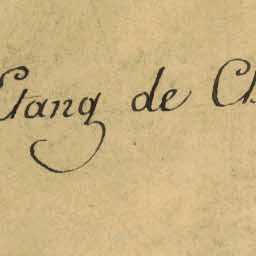 Etang de Ch